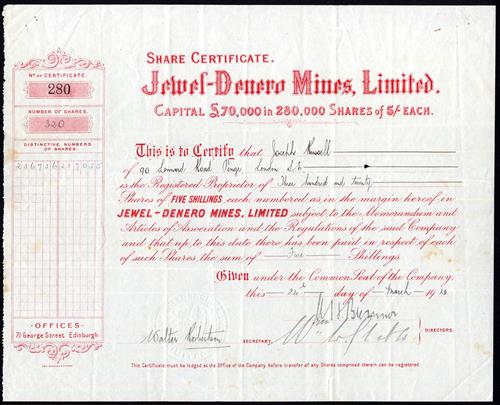 SHARE CERTIFICATE.
Jewel-Denero Mines, Limited.
CAPITAL £70,000 IN 280,000 SHARES OF 5/- EACH.
No OF CERTIFICATE.
280
NUMBER OF SHARES.
320
DISTINCTIVE NUMBERS OF SHARES.
This is to Certify that Joseph Russell
of 90 Lennard Road Penge London S.E.
is the Registered Proprietor of Three hundred and twenty
Shares of FIVE SHILLINGS each numbered as in the margin hereof in
JEWEL-DENERO MINES, LIMITED subject to the Memorandum and
Articles of Association and the Regulations of the said Company
and that up to this date there has been paid in respect of each
of such Shares the sum of Five Shillings.
Given under the Common Seal of the Company,
this 24th day of March 1913
DIRECTORS.
Walter Robertson
SECRETARY.
OFFICES
71 George Street Edinburgh.
This Certificate must be lodged at the Office of the Company before transfer of any Shares comprised therein can be registered.